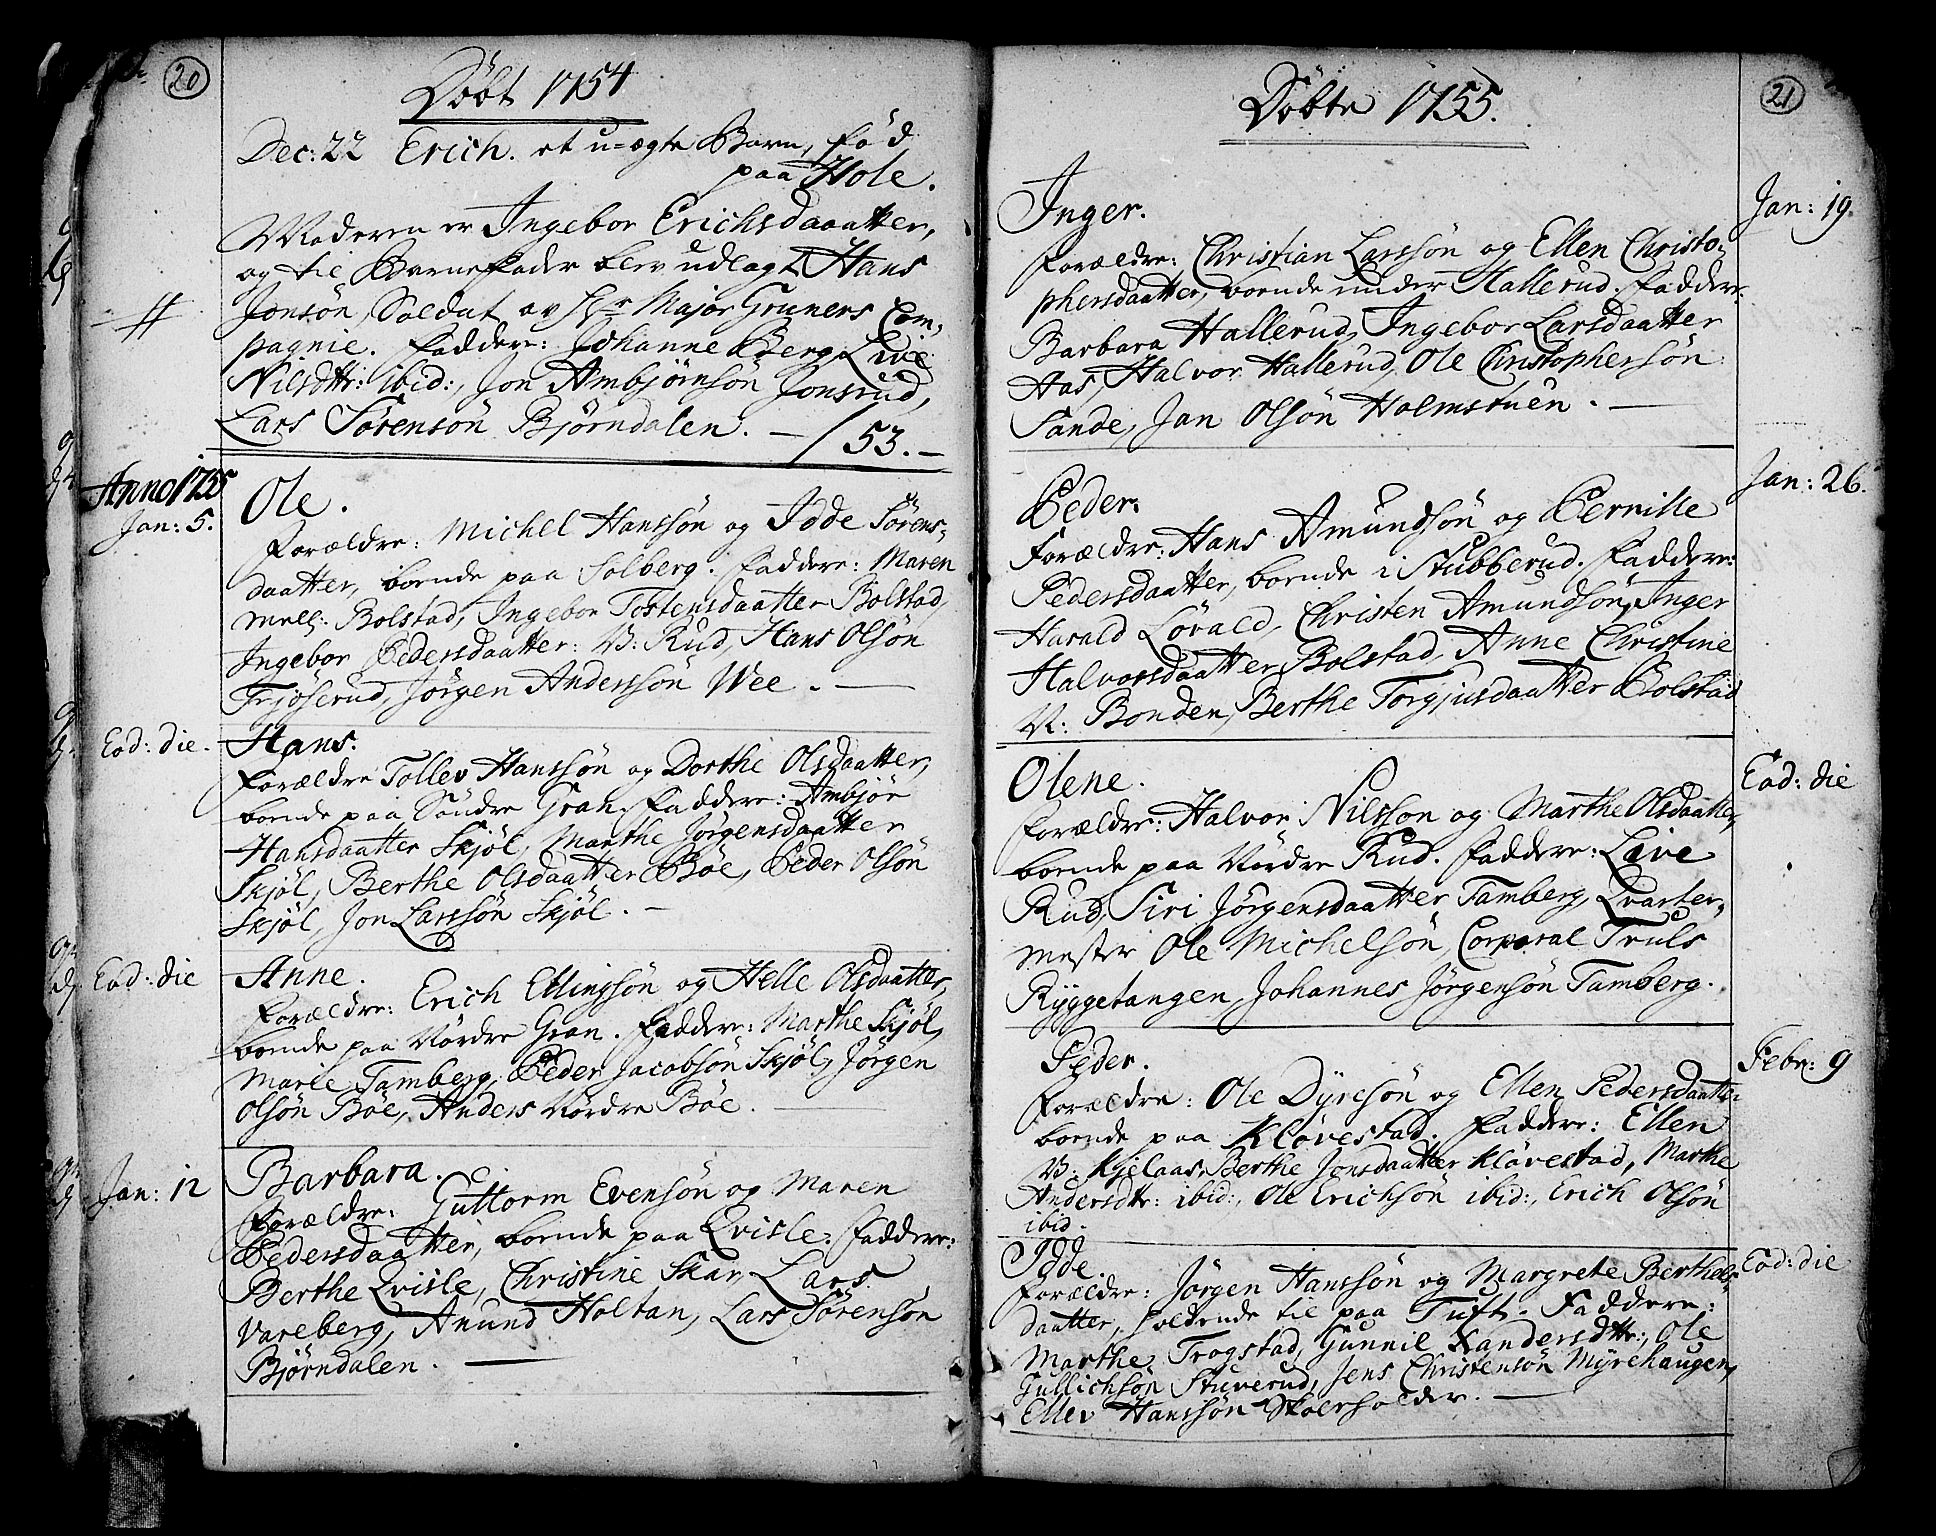 20
Döbt 1754
Dec: 22 Erich. et u=ægte Barn, fød
paa Hole.
Moderen er Ingebor Erichsdaaatter,
og til Barnefader blev udlagt Hans
#
Jonsön, Soldat av Hr Major Gruners Com=
pagnie. Faddere: Johanne Berg, Live
Nilsdtr: ibid:, Jon Ambjörnsön Jonsrud,
Lars Sörensön Björndalen. — / 53. —
Anno 1755
Jan: 5.
Ole.
Forældre: Michel Hanssön og Idde Sörens=
daatter, boende paa Solberg. Faddere: Maren
mell: Bolstad, Ingebor Tostensdaatter Bolstad,
Ingebor Pedersdaatter: V: Rud, Hans Olsön
Frjöserud, Jörgen Anderssön Wee. —
Eod: die.
Hans.
Forældre Tollev Hanssön og Dorthe Olsdaatter,
boende paa Söndre Gran. Faddere: Ambjör
Hansdaatter Skjöl, Marthe Jörgensdaatter
Skjöl, Berthe Olsdaatter Böe, Peder Olsön
Skjöl, Jon Larssön Skjöl. —
Eod: die
Anne.
Forældre: Erich Ellingsön og Helle Olsdaatter,
boende paa Nördre Gran. Faddere: Marthe Skjöl,
Marie Tamberg, Peder Jacobsön Skjöl, Jörgen
Olsön Böe, Anders Nördre Böe. —
Jan: 12
Barbara.
Forældre: Guttorm Evensön og Maren
Pedersdaatter, boende paa Qvisle. Faddere:
Berthe Qvisle, Christine Skar, Lars
Vareberg, Anund Holtan, Lars Sörensön
Björndalen. —
21
Döbte 1755.
Jan: 19.
Inger.
Forældre: Christian Larssön og Ellen Christo=
phersdaatter, boende under Hallerud. Faddere:
Barbara Hallerud, Ingebor Larsdaatter
Aas, Halvor Hallerud, Ole Christophersön
Sande, Jan Olsön Holmstuen. —
Jan: 26.
Peder.
Forældre: Hans Amundsön og Pernille
Pedersdaatter, boende i Stubberud. Faddere:
Harald Lövald, Christen Amundsön, Inger
Halvorsdaatter Bolstad, Anne Christine
V: Bonden, Berthe Torgjusdaatter Bolstad
Eod: die
Olene.
Forældre: Halvor Nilsson og Marthe Olsdaatter,
boende paa Nördre Rud. Faddere: Live
Rud, Siri Jörgensdaatter Tamberg, Qvarteer=
mester Ole Michelsön, Corporal Truls
Ryggetangen, Johannes Jörgensön Tamberg.
Febr: 9
Peder.
Forældre: Ole Dyresön og Ellen Pedersdaatter
boende paa Klövestad. Faddere: Ellen
V: Kjelaas, Berthe Jonsdaatter Klövestad, Marthe
Andersdtr: ibid:, Ole Erichsön ibid:, Erich Olsön
ibid.
Eod: die
Idde.
Forældre: Jörgen Hanssön og Margrete Berthels=
daatter, holdende til paa Tuft. Faddere:
Marthe Trogstad, Gunnil Xandersdtr:, Ole
Gullichsön Stuverud, Jens Christensön Myrehaugen,
Ellev Hanssön Skoleholder. —